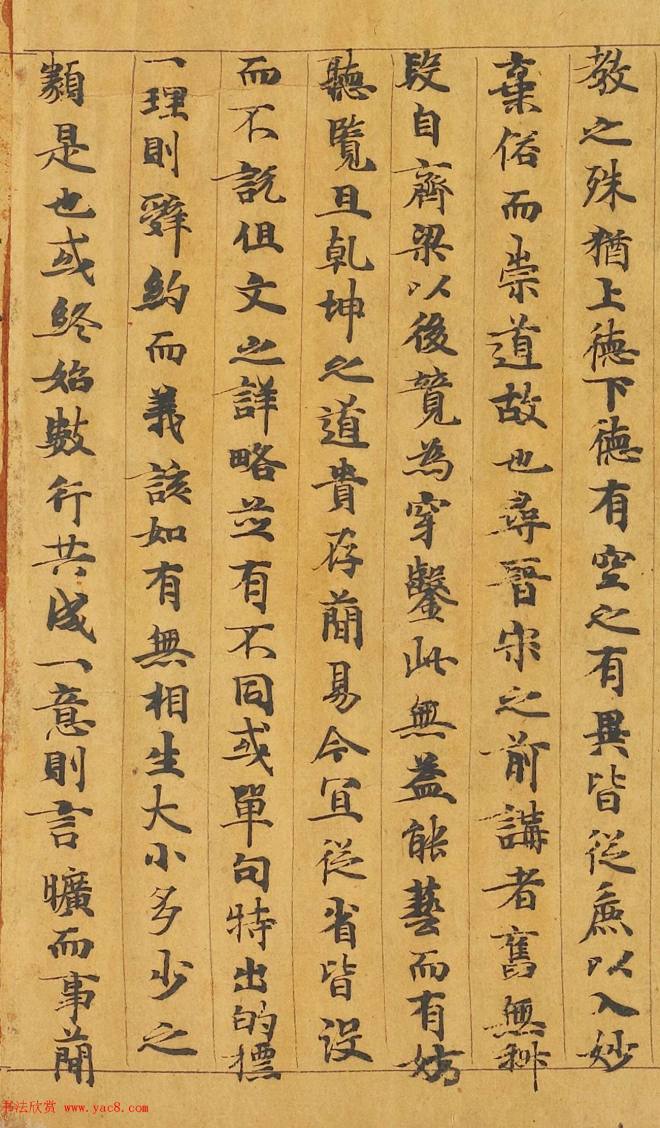 教之殊猶上德下德有空之有異皆從麁以入妙
棄俗而崇道故也尋晉宋之前講者舊無科
段自齊梁以後竟為穿鑿此無益能藝而有妨
聽覽且乾坤之道貴存簡易今宜從省皆沒
而不說但文之詳略並有不同或單句特出的標
一理則辭約而義該如有無相生大小多少之
類是也或終始數行共成一意則言曠而事簡
书法欣赏 www.yac8.com